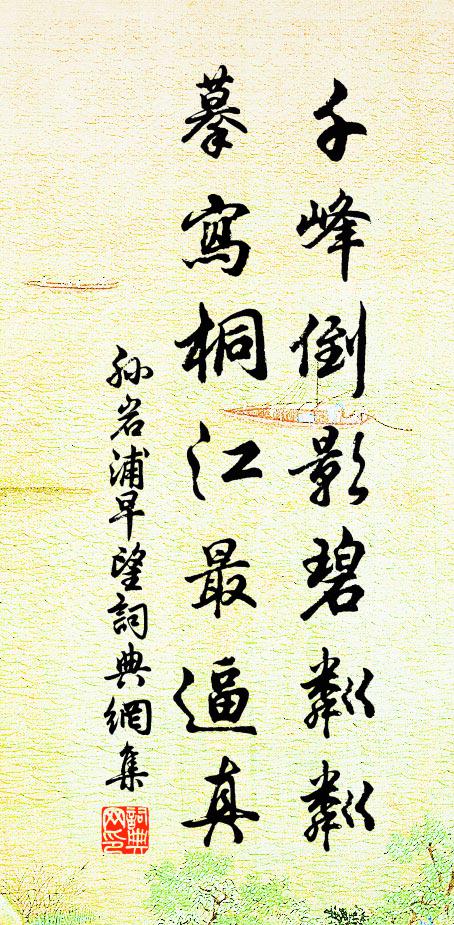 千峰倒影碧粼粼
摹寫桐江最逼真
孙岩浦早望詞典網集
詞典网印